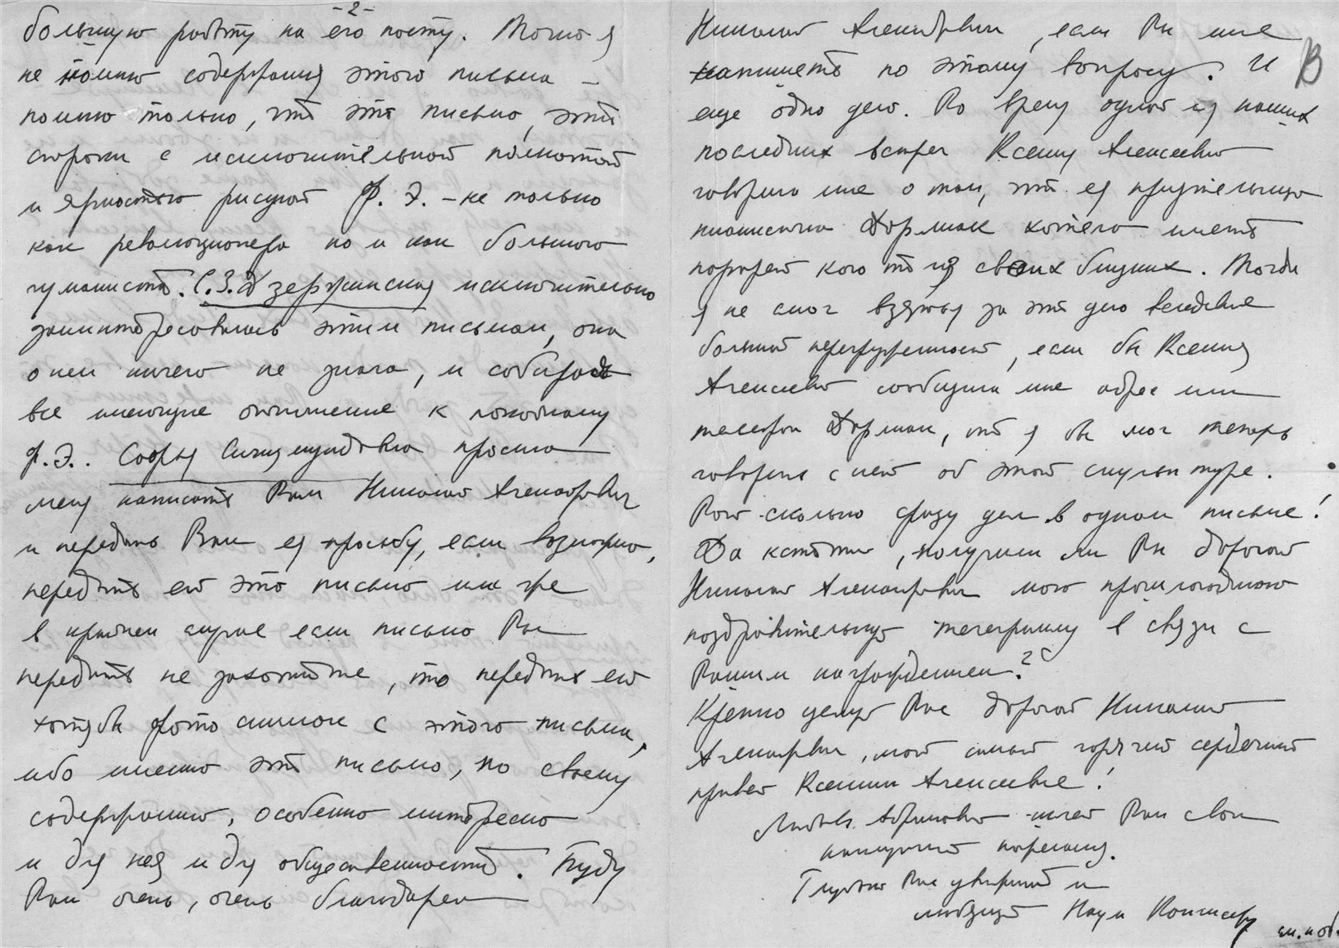 -2-
большую работу на его посту. Точно я
не помню содержания этого письма –
помню только, что это письмо, эти
строки с исключительной полнотой
и яркостью рисуют Ф. Э. – не только
как революционера но и как большого
гуманиста. С. З. Дзержинская исключительно
заинтересовалась этим письмом, она
о нем ничего не знала, и собирает
все имеющие отношение к покойному
Ф. Э.. Софья Сигизмундовна просила
меня написать Вам Николай Александрович
и передать Вам ея просьбу, если возможно,
передать ей это письмо или же
в крайнем случае если письмо Вы
передать не захотите, то передать ей
хотя бы фото снимок с этого письма,
ибо именно это письмо, по своему
содержанию, особенно интересно
и для нея и для общественности. Буду
Вам очень, очень благодарен
Николай Александрович, если Вы мне
напишете по этому вопросу. И
В
еще одно дело. Во время одной из наших
последних встреч Ксения Алексеевна
говорила мне о том, что ея приятельница
пианистка Дорлиак хотела иметь
портрет кого то из своих близких. Тогда
я не смог взяться за это дело вследствие
большой перегруженности, если бы Ксения
Алексеевна сообщила мне адрес или
телефон Дорлиак, то я бы мог теперь
говорить с ней об этой скульптуре.
Вот сколько сразу дел в одном письме!
Да кстати, получили ли Вы дорогой
Николай Александрович мою прошлогоднюю
поздравительную телеграмму в связи с
Вашим награждением?
Крепко целую Вас дорогой Николай
Александрович, мой самый горячий сердечный
привет Ксении Алексеевне!
шлет Вам свои
наилучшие пожелания.
Глубоко Вас уважающий и
любящий Наум
см. на об.